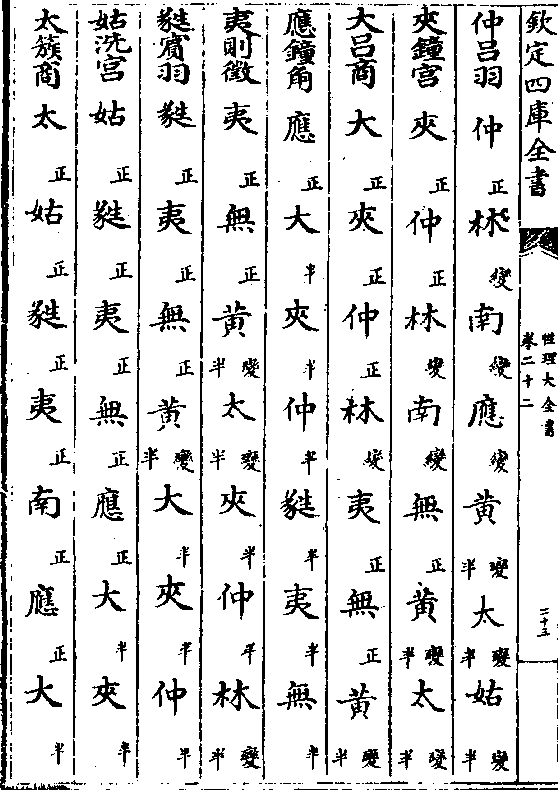 欽定四庫全書
性理大全書
卷二十二
仲呂羽 仲 正 林 變 南 變 應 變 黃 變半 太 變半 姑 變半
夾鐘宫 夾 正 仲 正 林 變 南 變 無 正 黃 變半 太 變半
大呂商 大 正 夾 正 仲 正 林 變 夷 正 無 正 黃 變半
應鐘角 應 正 大 半 夾 半 仲 半 蕤 半 夷 半 無 半
夷則徵 夷 正 無 正 黃 變半 太 變半 夾 半 仲 半 林 變半
蕤賓羽 蕤 正 夷 正 無 正 黃 變半 大 半 夾 半 仲 半
姑洗宫 姑 正 蕤 正 夷 正 無 正 應 正 大 半 夾 半
太簇商 太 正 姑 正 蕤 正 夷 正 南 正 應 正 大 半